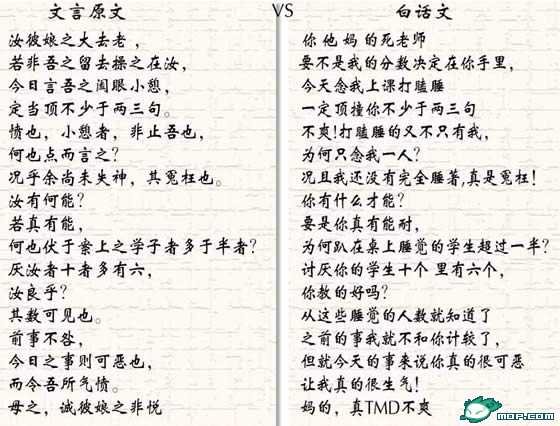 文言原文
VS
白话文
汝彼娘之大去老，
若非吾之留去操之在汝，
今日言吾之阖眼小憩，
定当顶不少于两三句。
愤也，小憩者，非止吾也，
何也点而言之？
况乎余尚未失神，其冤枉也。
汝有何能？
若真有能，
何也伏于案上之学子者多于半者？
厌汝者十者多有六，
汝良乎？
其数可见也。
前事不咎，
今日之事则可恶也，
而令吾所气愤。
母之，诚彼娘之非悦
你他妈的死老师
要不是我的分数决定在你手里，
今天念我上课打瞌睡
一定顶撞你不少于两三句
不爽！打瞌睡的又不只有我，
为何只念我一人？
况且我还没有完全睡著，真是冤枉！
你有什么才能？
要是你真有能耐，
为何趴在桌上睡觉的学生超过一半？
讨厌你的学生十个 里有六个，
你教的好吗？
从这些睡觉的人数就知道了
之前的事我就不和你计较了，
但就今天的事来说你真的很可恶
让我真的很生气！
妈的，真TMD不爽
MOP.COM